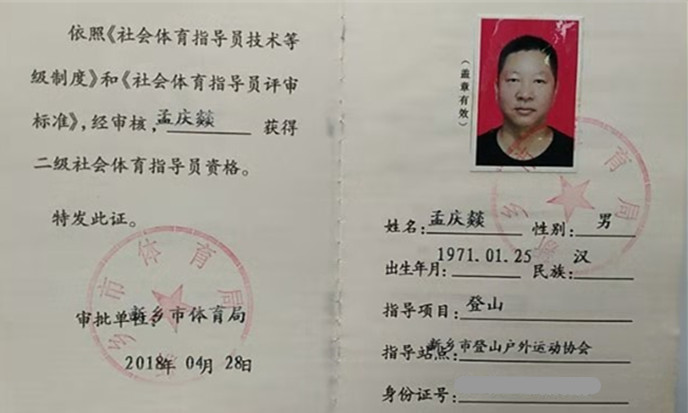 依照《社会体育指导员技术等
级制度》和《社会体育指导员评审
标准》,经审核,孟庆燚 获得
二级社会体育指导员资格。
特发此证。
审批单位:新乡市体育局
2018年 04月 28日
(盖章有效)
姓名:孟庆燚 性别:男
出生年月:1971.01.25 民族:汉
指导项目:登山
指导站点:新乡市登山户外运动协会
身份证号: